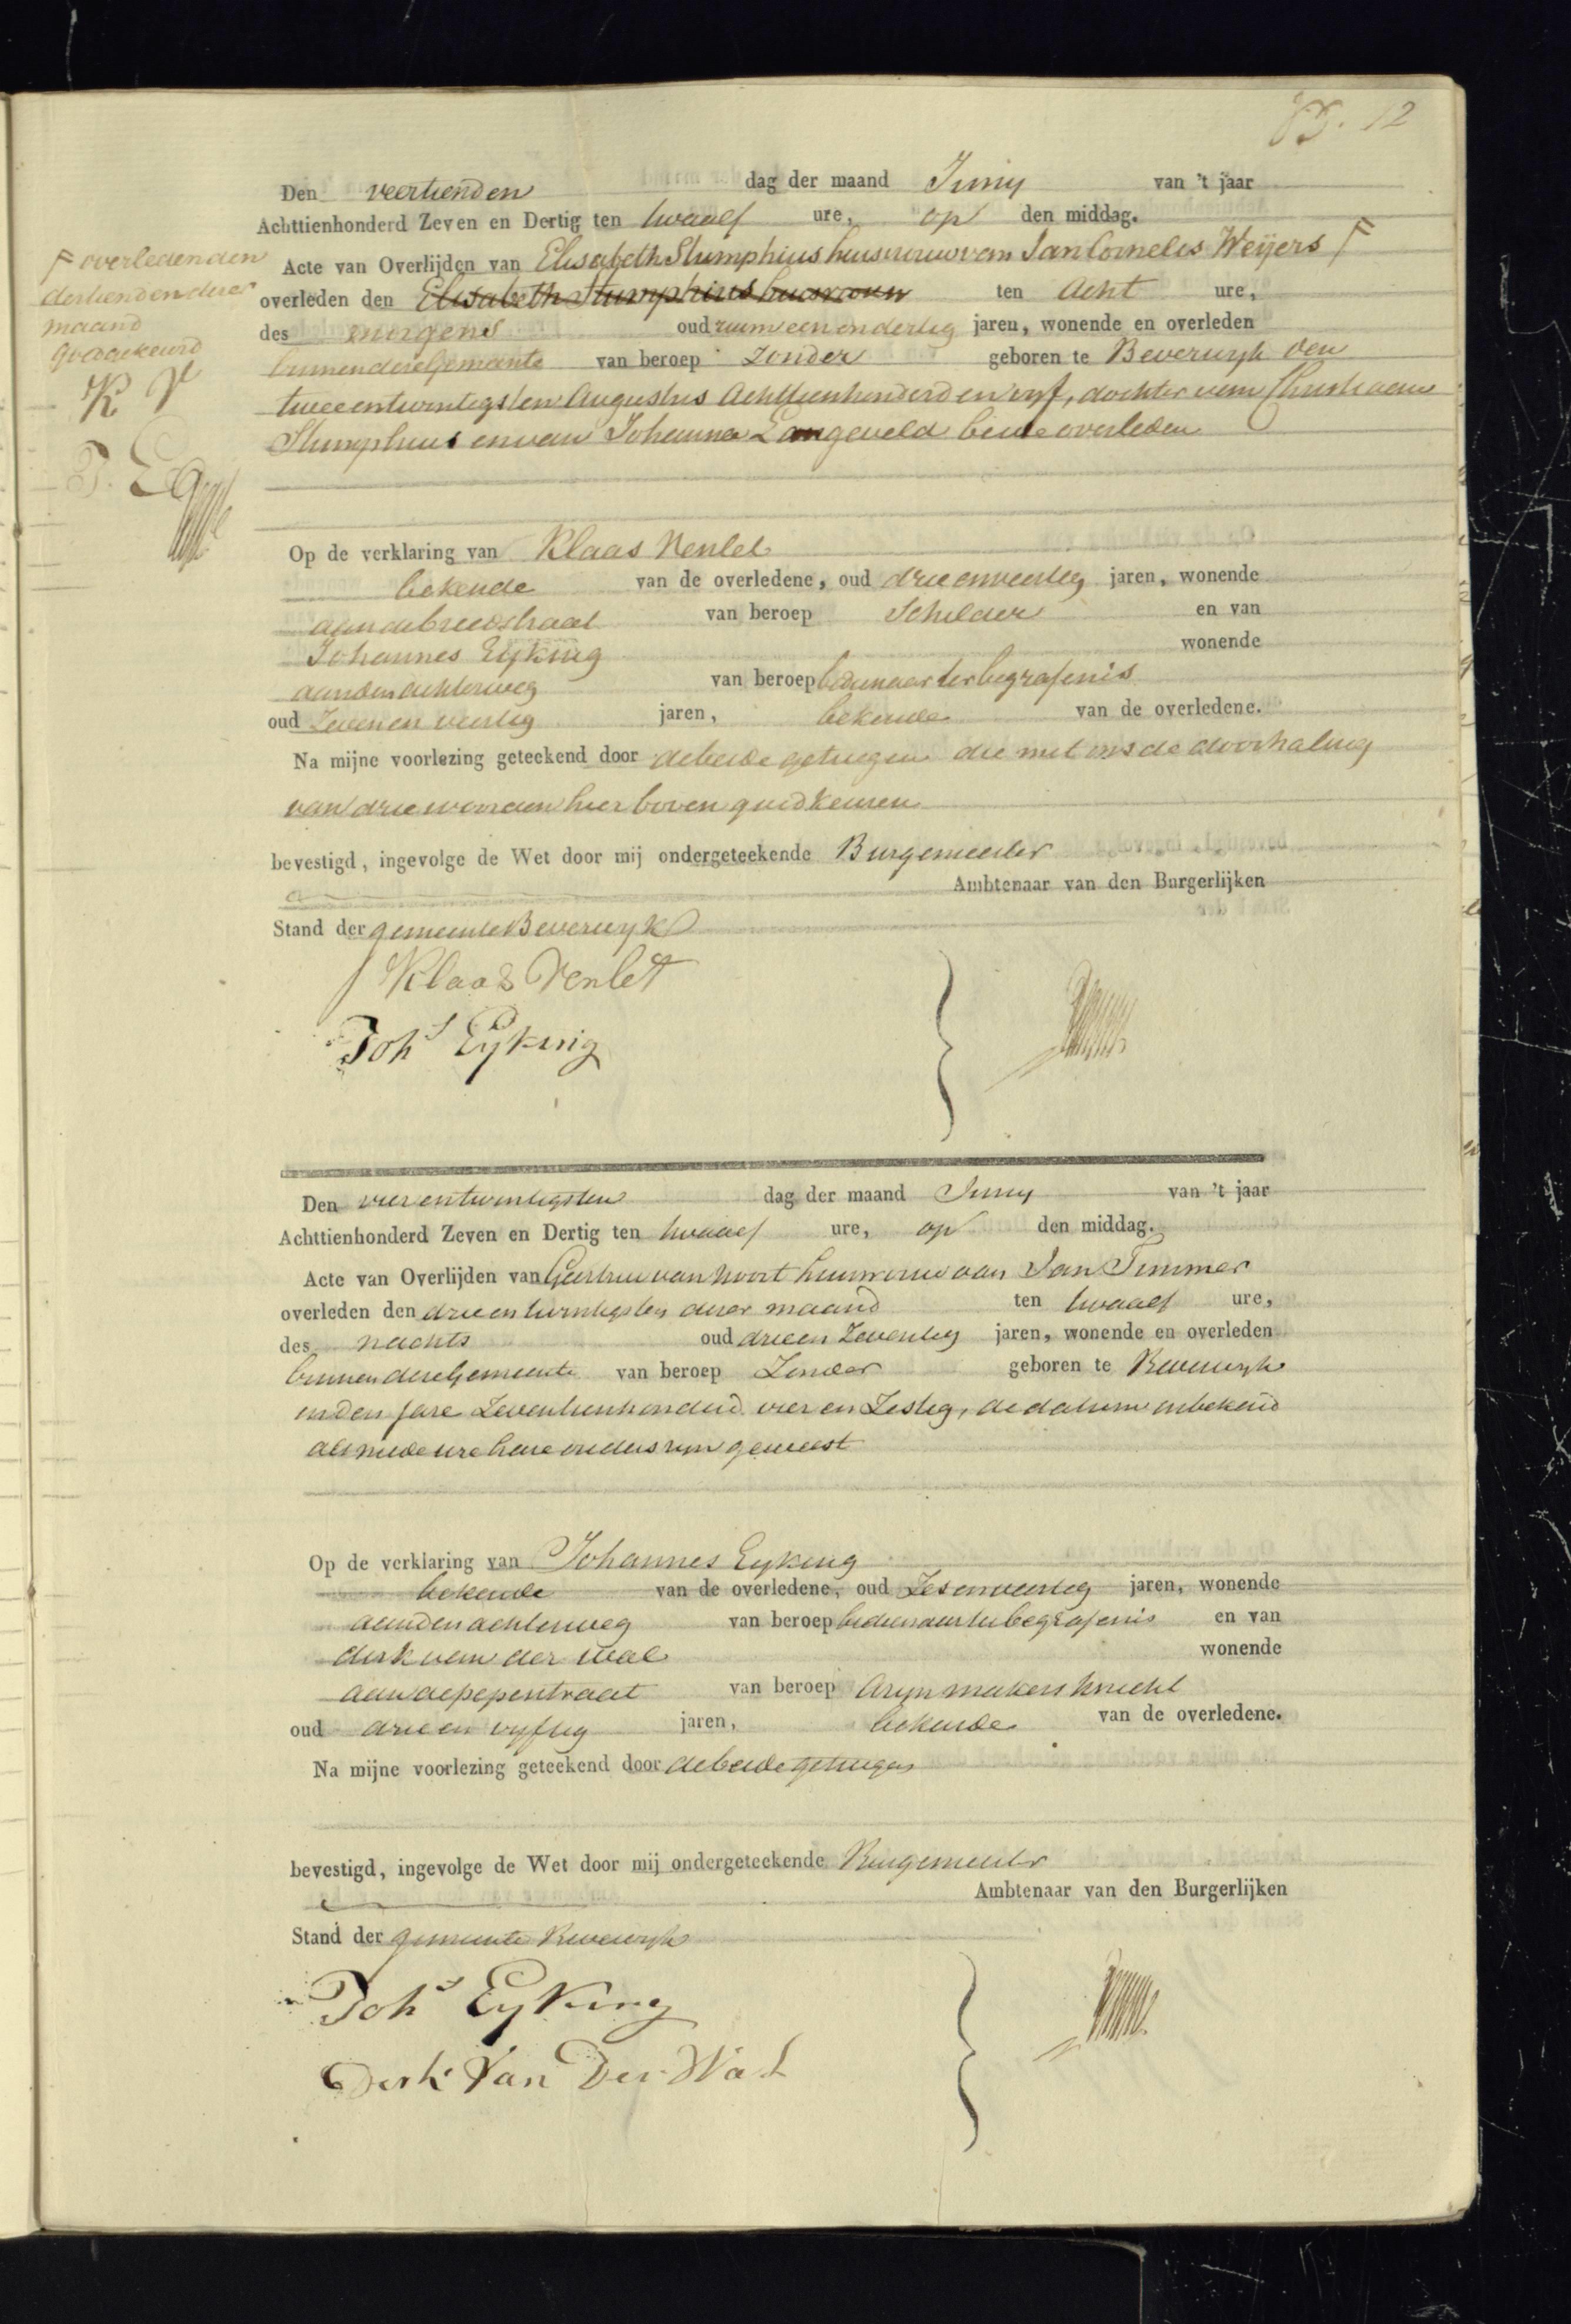 12
Den veertienden dag der maand Juny van 't jaar
Achttienhonderd Zeven en Dertig ten twaalf ure, op den middag.
Acte van Overlijden van Elisabeth Stumphius huisvrouw van Jan Cornelis Weijers F
F overleden den
dertienden deser
maand
goedgekeurd
K V
J. E
overleden den Elisabeth Stumphius huisvrouw ten Acht ure,
des morgens oud ruim een en dertig jaren, wonende en overleden
binnen dese Gemeente van beroep Zonder geboren te Beverwyk den
twee en twintigsten Augustus Achttienhonderd en vyf, dochter van Christiaan
Stumphius en van Johanna Langeveld beide overleden
Op de verklaring van Klaas Venlet
bekende van de overledene, oud drie en veertig jaren, wonende
aan de breedstraat van beroep Schilder en van
Johannes Eyking wonende
aan den achterweg van beroep bedienaar ter begrafenis
oud Zeven en veertig jaren, bekende van de overledene.
Na mijne voorlezing geteekend door de beide getuigen die met ons de doorhaling
van drie woorden hier boven goedkeuren
bevestigd, ingevolge de Wet door mij ondergeteekende Burgemeester
Ambtenaar van den Burgerlijken
Stand der gemeente Beverwyk
Klaas Venlet
Johs Eyking
Den vier en twintigsten dag der maand Juny van 't jaar
Achttienhonderd Zeven en Dertig ten twaalf ure, op den middag.
Acte van Overlijden van Geertrui van Noort huisvrouw van Jan Timmer
overleden den drie en twintigsten deser maand ten twaalf ure,
des nachts oud drie en Zeventig jaren, wonende en overleden
binnen dese Gemeente van beroep Zonder geboren te Beverwyk
in den jare Zeventienhonderd vier en Zestig, de datum onbekend
als mede wie hare ouders zyn geweest
Op de verklaring van Johannes Eyking
bekende van de overledene, oud Zes en veertig jaren, wonende
aan den achterweg van beroep bedienaar ter begrafenis en van
dirk van der Wal wonende
aan de pepenstraat van beroep Azynmakers knecht
oud drie en vyftig jaren, bekende van de overledene.
Na mijne voorlezing geteekend door de beide getuigen
bevestigd, ingevolge de Wet door mij ondergeteekende Burgemeester
Ambtenaar van den Burgerlijken
Stand der gemeente Beverwyk
Johs Eyking
Derk Van Der Wal